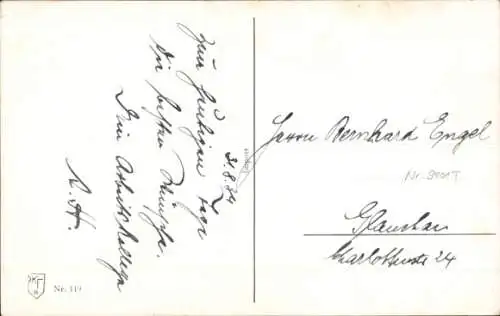 Zum heutigen Tage
die besten Wünsche.
Dein Arbeitskollege
K. H.
31.8.34
Herrn Bernhard Engel
Nr. 9001T
Glauchau
Charlottenstr 24
Nr. 119